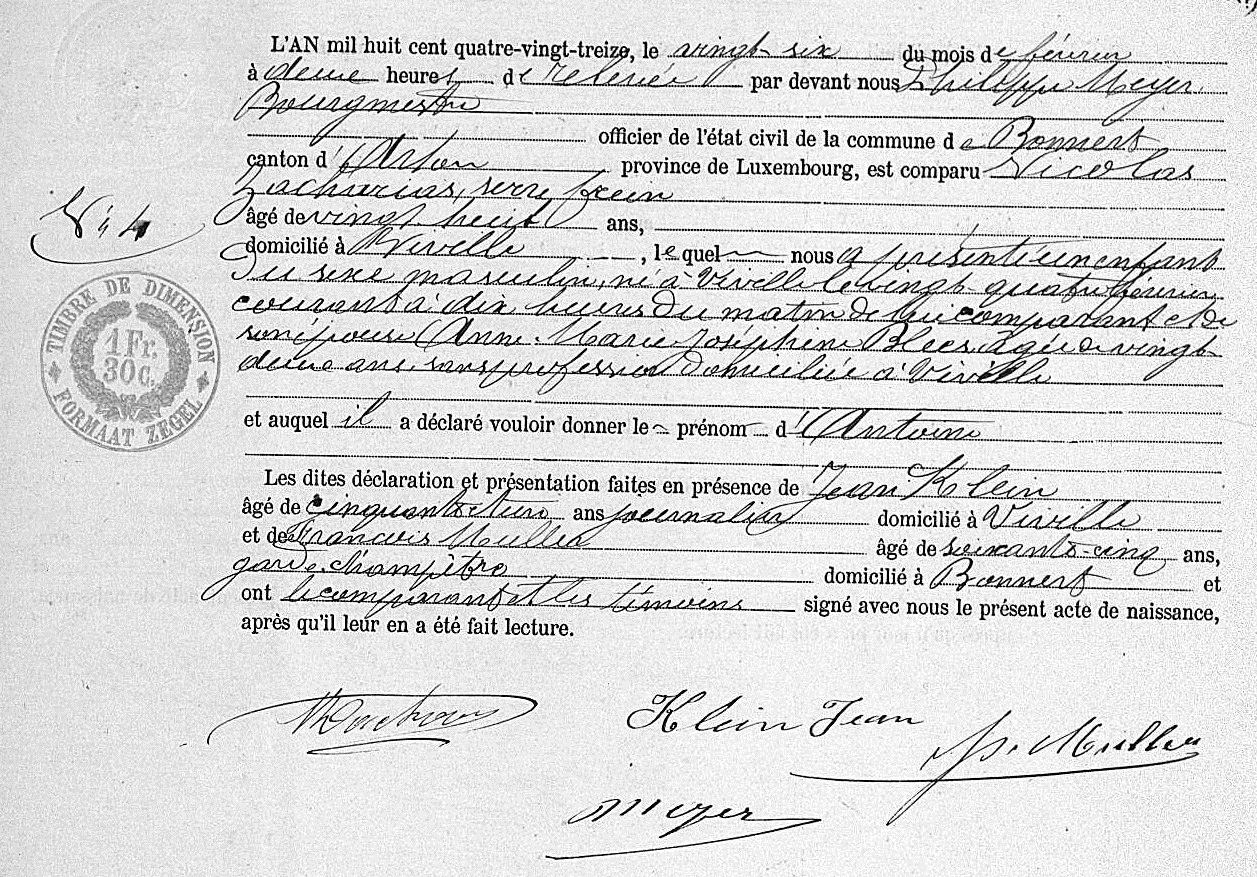 L'AN mil huit cent quatre-vingt-treize, le vingt-six du mois de février
à deux heures de relevée par devant nous Philippe Meyer
Bourgmestre
officier de l'état civil de la commune de Bonnert
canton d'Arlon province de Luxembourg, est comparu Nicolas
Zacharias, serre frein
âgé de vingt huit ans,
domicilié à Viville, lequel nous a présenté un enfant
du sexe masculin, né à Viville le vingt-quatre février
courant à dix heures du matin de lui comparant et de
son épouse Anne-Marie-Joséphine Blees, âgée de vingt
deux ans, sans profession domiciliée à Viville
et auquel il a déclaré vouloir donner le prénom d'Antoine
Les dites déclaration et présentation faites en présence de Jean Klein
âgé de cinquante et un ans journalier domicilié à Viville
et de François Muller âgé de soixante-cinq ans,
garde champêtre domicilié à Bonnert et
ont le comparant et les témoins signé avec nous le présent acte de naissance,
après qu'il leur en a été fait lecture.
N° 4
TIMBRE DE DIMENSION
1 Fr.
30 C.
FORMAAT ZEGEL
Klein Jean
Muller
Meyer